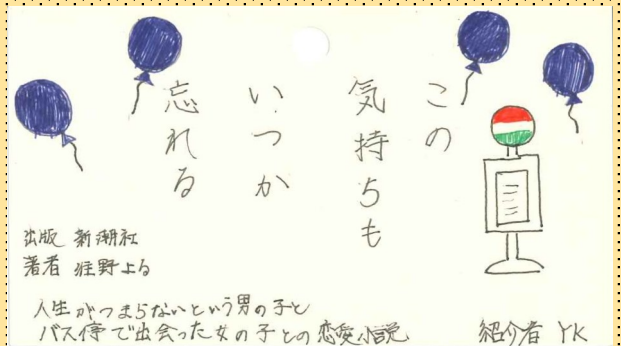 この
気持ちも
いつか
忘れる
出版 新潮社
著者 住野よる
人生がつまらないという男の子と
バス停で出会った女の子との恋愛小説
紹介者 YK